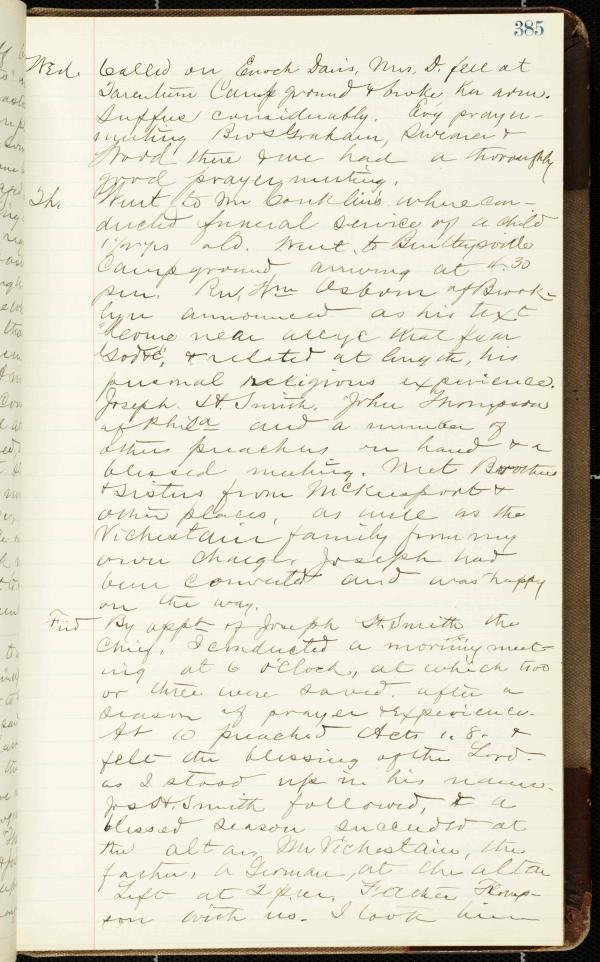 385
Wed. Called on Enoch Davis, Mrs. D. fell at
Tarentum Camp ground & broke her arm.
Suffers considerably. Ev'g prayer-
meeting Bros Graham, &
Wood there & we had a thoroughly
good prayer meeting.
Th. Went to Mr Conklin's where con-
ducted funeral service of a child
old. Went to Bentleysville
Camp ground arriving at 4.30
pm. Rev. Wm Osborn of Brook-
lyn announced as his text
"Come near all ye that fear
God &c", & related at length, his
personal religious experience.
Joseph. H. Smith. John Thompson
of Phila and a number of
others preachers on hand & a
blessed meeting. Met Brothers
& Sisters from McKeesport &
other places, as well as the
Vichestain family from my
own charge, Joseph had
been converted and was happy
on the way.
Frid By appt of Joseph H. Smith the
Chief, I conducted a morning meet-
ing at 6 o'Clock, at which two
or three were saved. after a
season of prayer & experience.
At 10 preached Acts 1.8. &
felt the blessing of the Lord.
as I stood up in his name.
Jos H. Smith followed, & a
blessed season succeeded at
the altar, Mr Vichestain, the
father, a German, at the altar
Left at 2 p.m. Father Thomp-
son with us. I took him